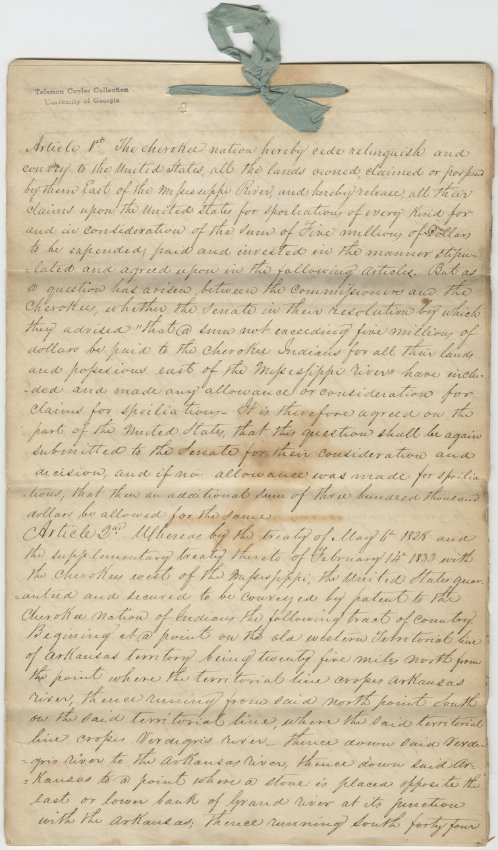 Telamon Cuyler Collection
University of Georgia
Article 1st. The Cherokee nation hereby cede relinquish and
convey to the United States, all the lands owned, claimed or possessed
by them East of the Mississippi River, and hereby release all their
claims upon the United States for spoliations of every kind for
and in consideration of the sum of Five millions of Dollars
to be expended, paid and invested in the manner stipu-
-lated and agreed upon in the following articles. But as
a question has arisen between the Commissioners and the
Cherokees, whether the Senate in their resolution by which
they advised "that a sum not exceeding five millions of
dollars be paid to the Cherokee Indians for all their lands
and possessions east of the Mississippi river" have inclu-
-ded and made any allowance or consideration for
claims for spoliations- It is therefore agreed on the
part of the United States, that this question shall be again
submitted to the Senate for their consideration and
decision, and if no allowance was made for spolia-
-tions, that then an additional sum of three hundred thousand
dollars be allowed for the same
Article 2nd Whereas by the treaty of May 6th 1828 and
the supplementary treaty thereto of February 14th 1833 with
the Cherokees west of the Mississippi, the United States guar-
-anteed and secured to be conveyed by patent to the
Cherokee nation of Indians the following tract of country
Begining at a point on the old western Territorial line
of Arkansas territory being twenty five miles north from
the point where the territorial line crosses Arkansas
river, thence running from said north point South
on the said territorial line, where the said territorial
line crosses Verdegris river thence down said Verde-
-gris river to the Arkansas river, thence down said Ar-
-kansas to a point where a stone is placed opposite the
east or lower bank of Grand river at its junction
with the Arkansas; thence running South forty four